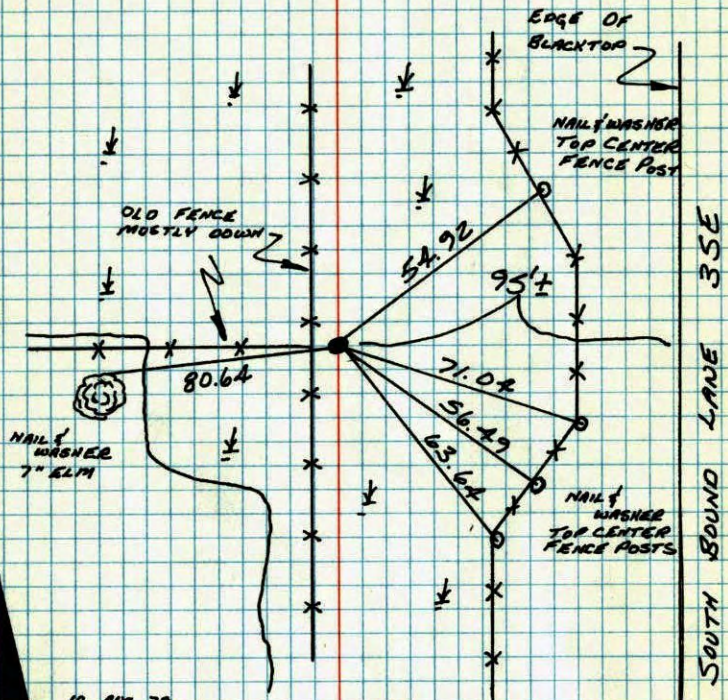 EDGE OF
BLACKTOP
NAIL & WASHER
TOP CENTER
FENCE POST
OLD FENCE
MOSTLY DOWN
54.92
95'±
80.64
71.02
56.49
63.64
NAIL &
WASHER
7" ELM
NAIL &
WASHER
TOP CENTER
FENCE POSTS
SOUTH BOUND LANE 35E